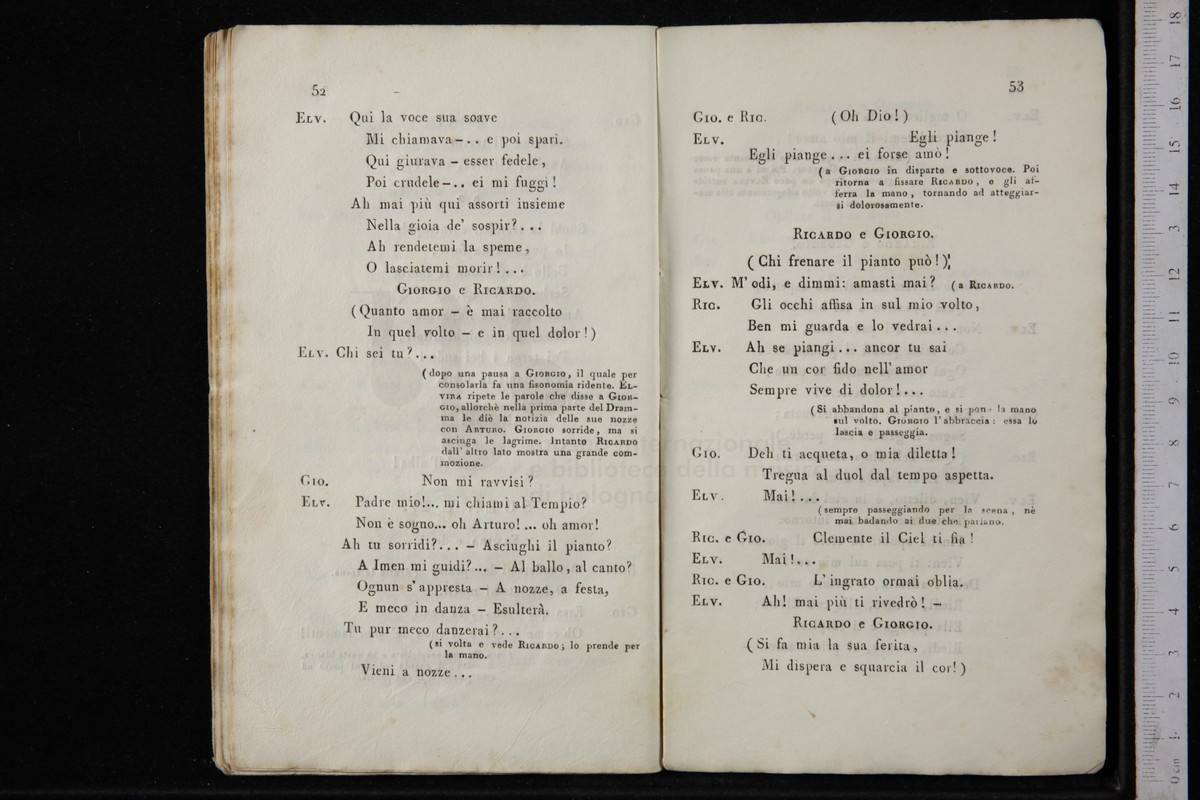 52
ELV. Qui la voce sua soave
Mi chiamava – . . e poi sparì.
Qui giurava – esser fedele,
Poi crudele – . . ei mi fuggì!
Ah mai più qui assorti insieme
Nella gioia de' sospir? . . .
Ah rendetemi la speme,
O lasciatemi morir! . . .
GIORGIO e RICARDO.
(Quanto amor – è mai raccolto
In quel volto – e in quel dolor!)
ELV. Chi sei tu? . . .
(dopo una pausa a GIORGIO, il quale per
consolarla fa una fisonomia ridente. EL-
VIRA ripete le parole che disse a GIOR-
GIO, allorchè nella prima parte del Dram-
ma le diè la notizia delle sue nozze
con ARTURO. GIORGIO sorride, ma si
asciuga le lagrime. Intanto RICARDO
dall' altro lato mostra una grande com-
mozione.
GIO. Non mi ravvisi?
ELV. Padre mio!... mi chiami al Tempio?
Non è sogno... oh Arturo! ... oh amor!
Ah tu sorridi? . . . – Asciughi il pianto?
A Imen mi guidi? ... – Al ballo, al canto?
Ognun s' appresta – A nozze, a festa,
E meco in danza – Esulterà.
Tu pur meco danzerai? . . .
(si volta e vede RICARDO; lo prende per
la mano.
Vieni a nozze . . .
53
GIO. e RIC. (Oh Dio!)
ELV. Egli piange!
Egli piange . . . ei forse amò!
(a GIORGIO in disparte e sottovoce. Poi
ritorna a fissare RICARDO, e gli af-
ferra la mano, tornando ad atteggiar-
si dolorosamente.
RICARDO e GIORGIO.
(Chi frenare il pianto può!)
ELV. M' odi, e dimmi: amasti mai? (a RICARDO.
RIC. Gli occhi affisa in sul mio volto,
Ben mi guarda e lo vedrai . . .
ELV. Ah se piangi... ancor tu sai
Che un cor fido nell' amor
Sempre vive di dolor! . . .
(Si abbandona al pianto, e si pone la mano
sul volto. GIORGIO l' abbraccia: essa lo
lascia e passeggia.
GIO. Deh ti acqueta, o mia diletta!
Tregua al duol dal tempo aspetta.
ELV. Mai! . . .
(sempre passeggiando per la scena, nè
mai badando ai due che parlano.
RIC. e GIO. Clemente il Ciel ti fia!
ELV. Mai! . . .
RIC. e GIO. L' ingrato ormai oblia.
ELV. Ah! mai più ti rivedrò! –
RICARDO e GIORGIO.
(Si fa mia la sua ferita,
Mi dispera e squarcia il cor!)
internazionale
e biblioteca della musica
di bologna
0 cm 1 2 3 4 5 6 7 8 9 10 11 12 13 14 15 16 17 18